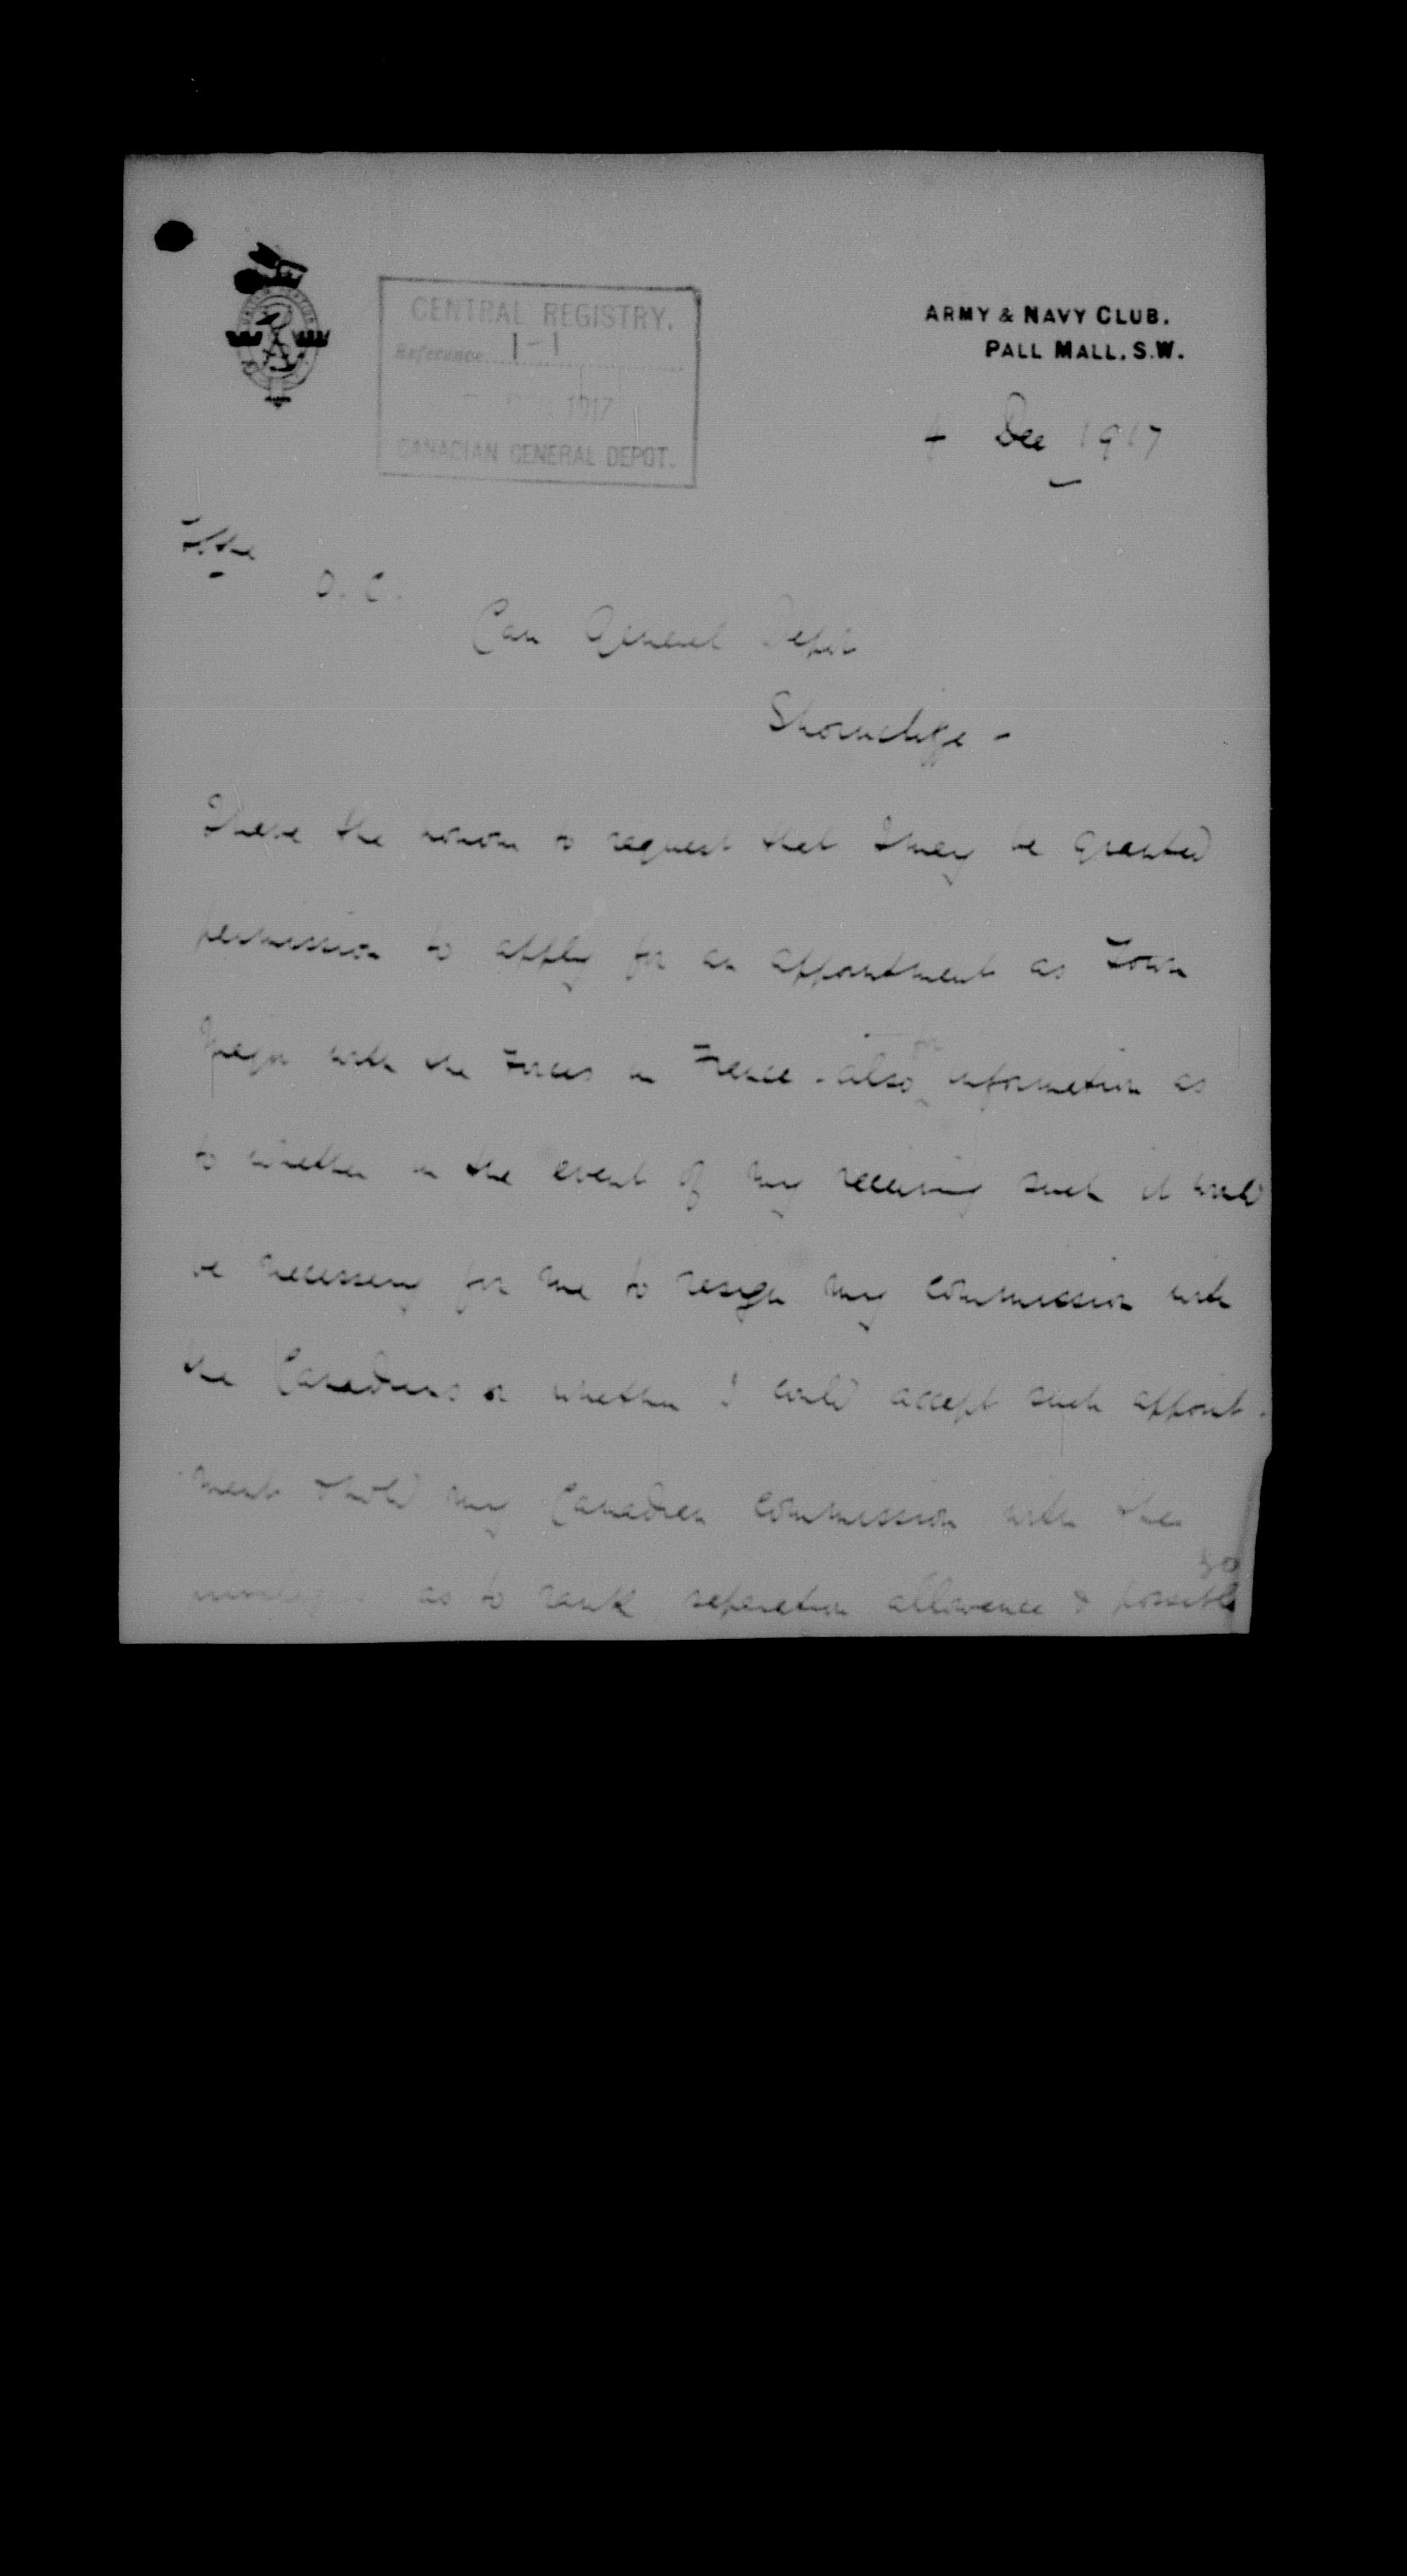 CENTRAL REGISTRY.
Reference 1-1
1917
CANADIAN GENERAL DEPOT.
ARMY & NAVY CLUB.
PALL MALL, S.W.
4 Dec 1917
To the
O. C.
Can General Depot
Shorncliffe -
I have the honour to request that I may be granted
permission to apply for an appointment as Town
Major with the Forces in France - also for information as
to whether in the event of my receiving such it would
be necessary for me to resign my commission with
the Canadians or whether I could accept such appoint-
ment & hold my Canadian commission with the
as to rank separation allowance & possible